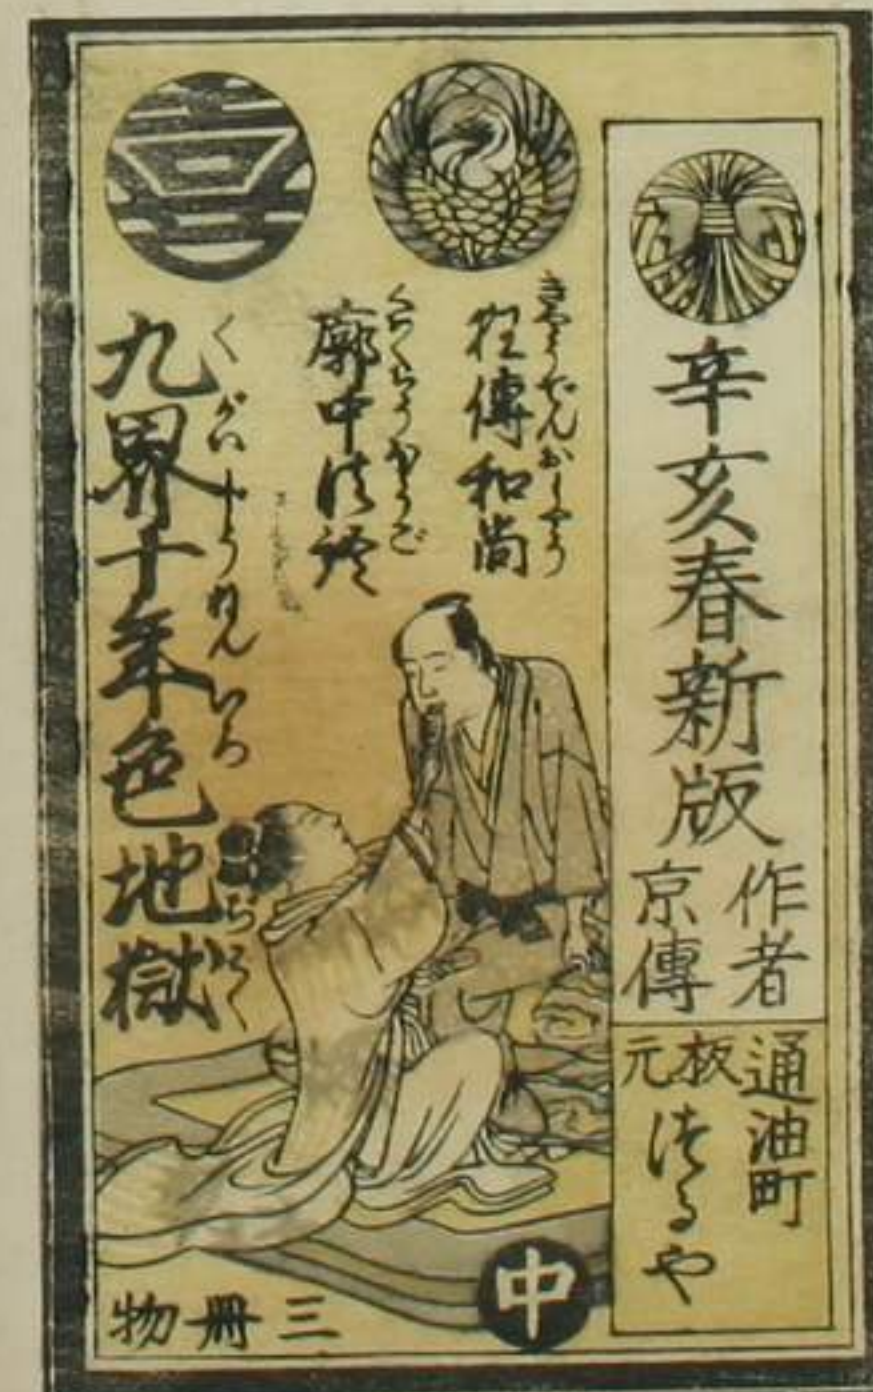 辛亥春新版
作者
京傳
通油町
板元
つるや
きやうでんおしやう
狂傳和尚
くわくちうほうご
廓中法語
くがいじうねんいろぢごく
九界十年色地獄
中
三冊物